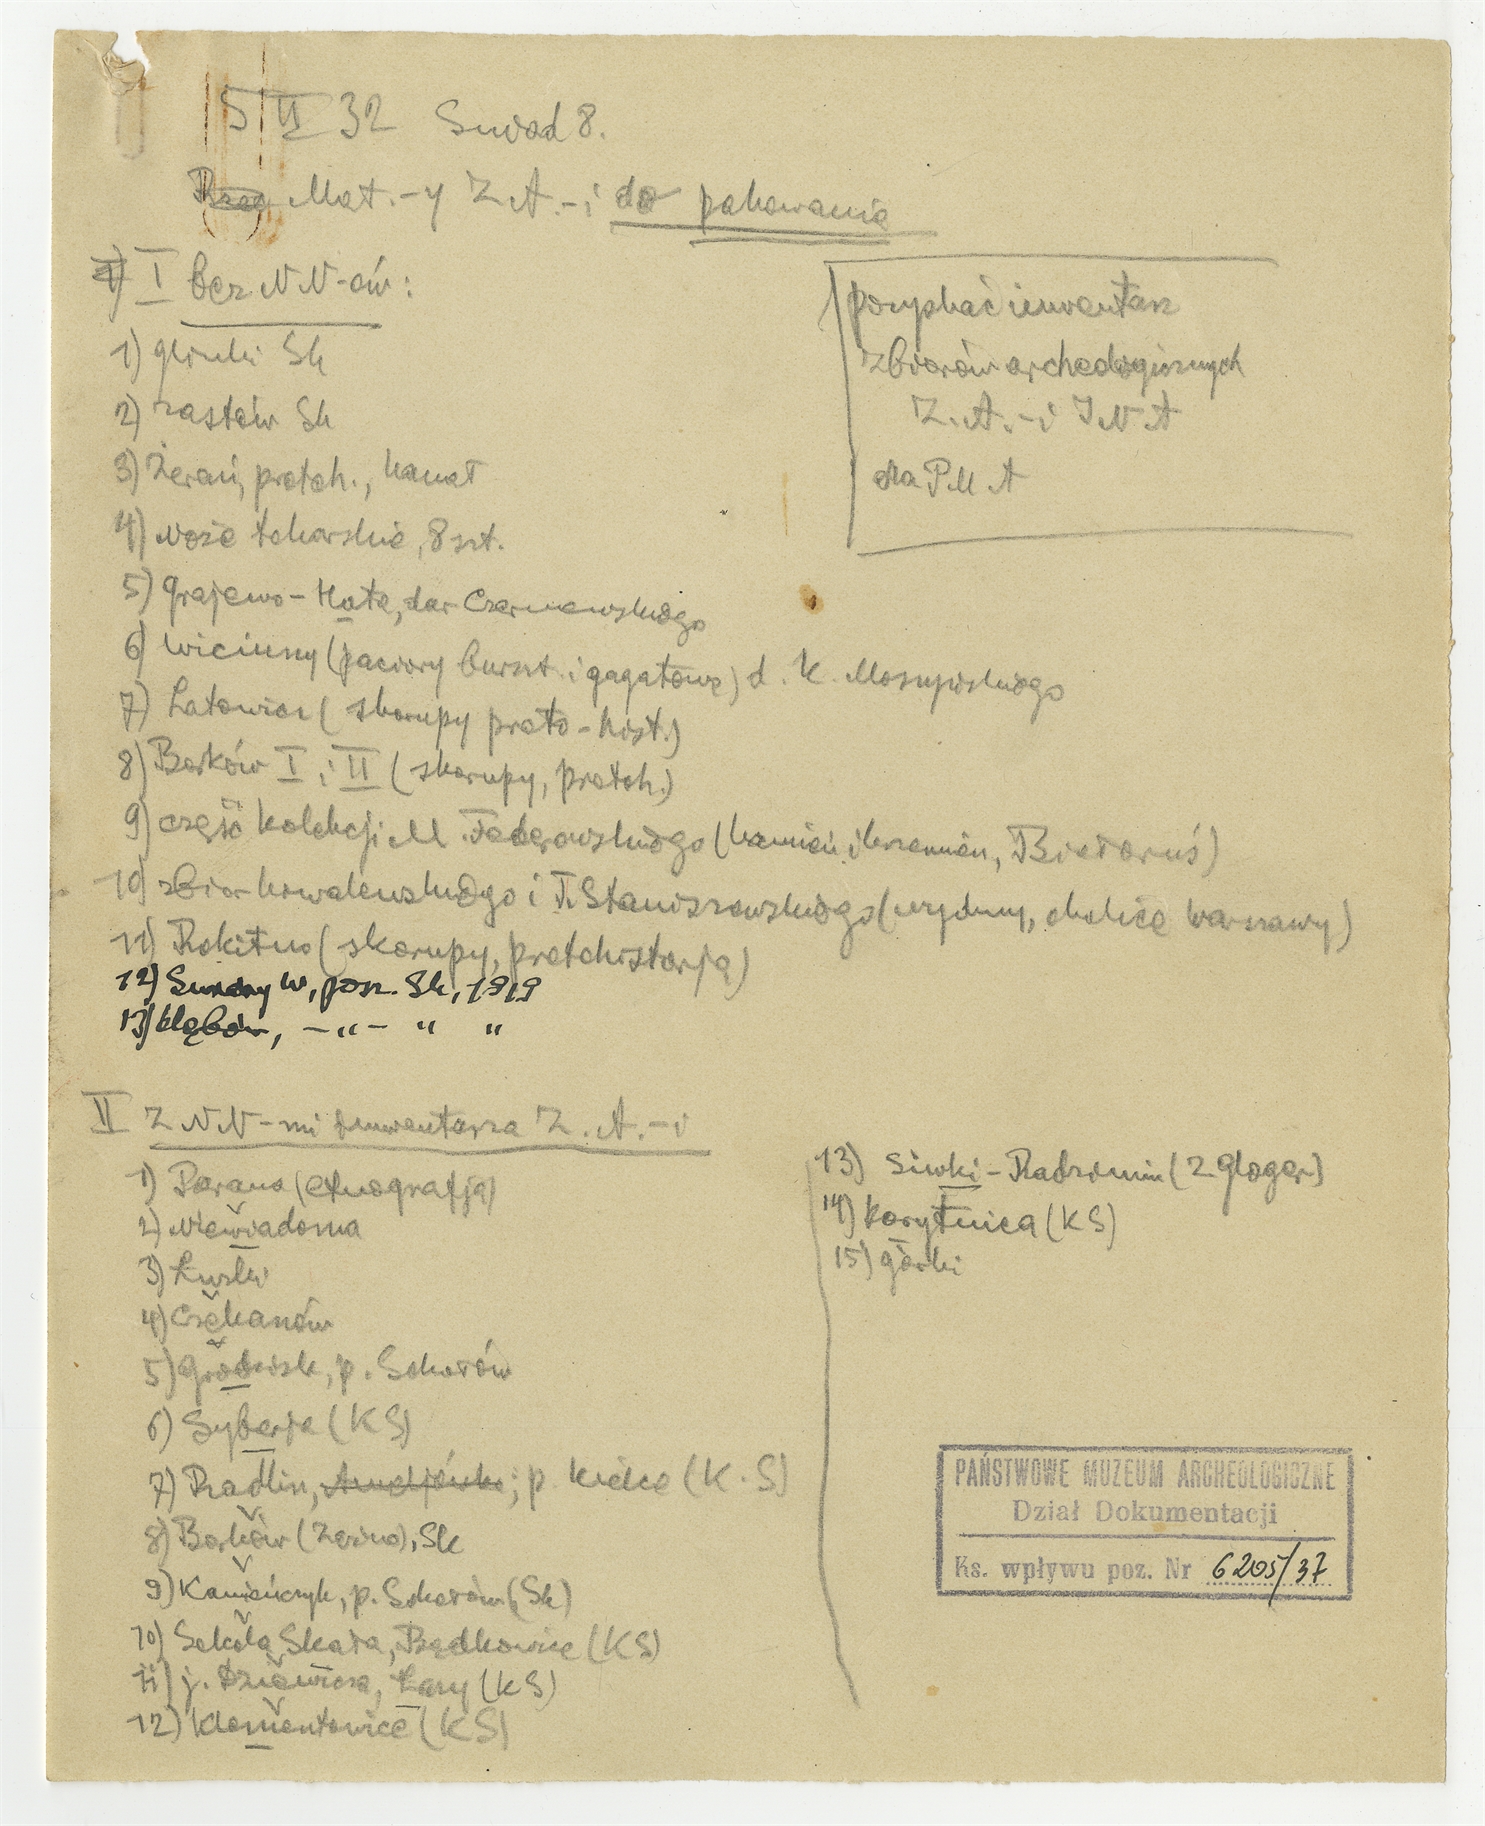 5 II 32 Suwad 8.
Mat.-y Z A.-i do pakowania
I bez NN-ów:
1) glinki Sk
2) rastów Sk
3) Żerań, protoh., kamat
4) Noże tokarskie, 8 szt.
5) Grajewo - Kąta, dar Czarnowskiego
6) Wiciuny (paciory burszt. i gagatowe) d. K. Moszyńskiego
7) Latowicz (skorupy proto-hist.)
8) Borków I i II (skorupy, protoh.)
9) część kolekcji M. Federowskiego (kamień i krzemień, Białoruś)
10) zbior Kowalewskiego i F. Staniszewskiego (wydmy, okolice Warszawy)
11) Rokitno (skorupy, protohistorja)
12) W, pow. Sk, 1919
13) Klębów, -„- „ „
pozyskać inwentarz
zbiorów archeologicznych
Z. A.-i I N A
dla P M A
II Z NN-mi inwentarza Z. A.-i
1) Parana (etnografja)
2) Niewiadoma
3) Łuzki
4) Czekanów
5) Grodzisk, p. Sokołów
6) Syberja (KS)
7) Radlin, p. Kielce (K. S)
8) Borków (Żerino), Sk
9) Kamieńczyk, p. Sokołów (Sk)
10) Sokola Skała, Będkowice (KS)
11) j. Dziewicza, Łazy (KS)
12) Klementowice (KS)
13) Siwki - Radzimin (Z Gloger)
14) Korytnica (KS)
15) Górki
PAŃSTWOWE MUZEUM ARCHEOLOGICZNE
Dział Dokumentacji
Ks. wpływu poz. Nr 6205/37